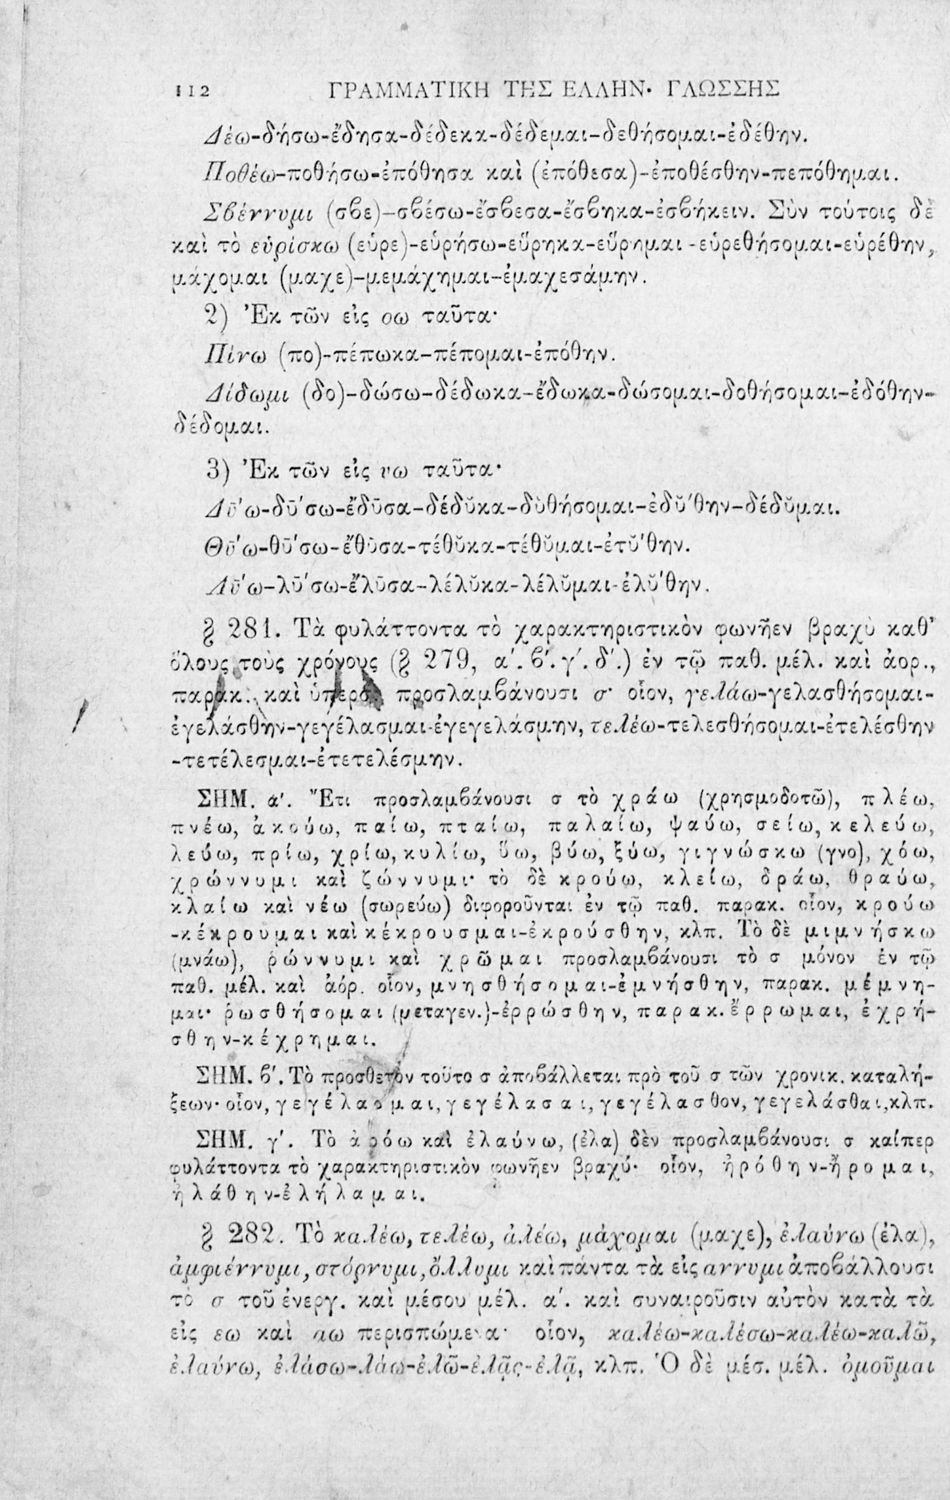 112 ΓΡΑΜΜΑΤΙΚΗ ΤΗΣ ΕΛΛΗΝ· ΓΛΩΣΣΗΣ
Δέω-δήσω-ἔδησα-δέδεκα-δέδεμαι-δεθήσομαι-ἐδέθην.
Ποθέω-ποθήσω-ἐπόθησα καὶ (ἐπόθεσα)-ἐποθέσθην-πεπόθημαι.
Σβέννυμι (σβε)-σβέσω-ἔσβεσα-ἔσβηκα-ἐσβήκειν. Σὺν τούτοις δὲ
καὶ τὸ εὑρίσκω (εὑρε)-εὑρήσω-εὕρηκα-εὕρημαι-εὑρεθήσομαι-εὑρέθην,
μάχομαι (μαχε)-μεμάχημαι-ἐμαχεσάμην.
2) Ἐκ τῶν εἰς οω ταῦτα·
Πίνω (πο)-πέπωκα-πέπομαι-ἐπόθην.
Δίδωμι (δο)-δώσω-δέδωκα-ἔδωκα-δώσομαι-δοθήσομαι-ἐδόθην-
δέδομαι.
3) Ἐκ τῶν εἰς υω ταῦτα·
Δῡ́ω-δῡ́σω-ἔδῡσα-δέδῠκα-δῠθήσομαι-ἐδῠ́θην-δέδῠμαι.
Θῡ́ω-θῡ́σω-ἔθῡσα-τέθῠκα-τέθῠμαι-ἐτῠ́θην.
Λῡ́ω-λῡ́σω-ἔλῡσα-λέλῠκα-λέλῠμαι-ἐλῠ́θην.
§ 281. Τὰ φυλάττοντα τὸ χαρακτηριστικὸν φωνῆεν βραχὺ καθ'
ὅλους τοὺς χρόνους (§ 279, α'. β'. γ'. δ'.) ἐν τῷ παθ. μέλ. καὶ ἀορ.,
παρακ. καὶ ὑπερσ. προσλαμβάνουσι σ· οἷον, γελάω-γελασθήσομαι-
ἐγελάσθην-γεγέλασμαι-ἐγεγελάσμην, τελέω-τελεσθήσομαι-ἐτελέσθην
-τετέλεσμαι-ἐτετελέσμην.
ΣΗΜ. α'. Ἔτι προσλαμβάνουσι σ τὸ χράω (χρησμοδοτῶ), πλέω,
πνέω, ἀκούω, παίω, πταίω, παλαίω, ψαύω, σείω, κελεύω,
λεύω, πρίω, χρίω, κυλίω, ὕω, βύω, ξύω, γιγνώσκω (γνο), χόω,
χρώννυμι καὶ ζώννυμι· τὸ δὲ κρούω, κλείω, δράω, θραύω,
κλαίω καὶ νέω (σωρεύω) διφοροῦνται ἐν τῷ παθ. παρακ. οἷον, κρούω
-κέκρουμαι καὶ κέκρουσμαι-ἐκρούσθην, κλπ. Τὸ δὲ μιμνήσκω
(μνάω), ῥώννυμι καὶ χρῶμαι προσλαμβάνουσι τὸ σ μόνον ἐν τῷ
παθ. μέλ. καὶ ἀόρ. οἷον, μνησθήσομαι-ἐμνήσθην, παρακ. μέμνη-
μαι· ῥωσθήσομαι (μεταγεν.)-ἐρρώσθην, παρακ. ἔρρωμαι, ἐχρή-
σθην-κέχρημαι.
ΣΗΜ. β'. Τὸ προσθετὸν τοῦτο σ ἀποβάλλεται πρὸ τοῦ σ τῶν χρονικ. καταλή-
ξεων· οἷον, γεγέλασμαι, γεγέλασαι, γεγέλασθον, γεγελάσθαι, κλπ.
ΣΗΜ. γ'. Τὸ ἀρόω καὶ ἐλαύνω, (ἐλα) δὲν προσλαμβάνουσι σ καίπερ
φυλάττοντα τὸ χαρακτηριστικὸν φωνῆεν βραχύ· οἷον, ἠρόθην-ἤρομαι,
ἠλάθην-ἐλήλαμαι.
§ 282. Τὸ καλέω, τελέω, ἀλέω, μάχομαι (μαχε), ἐλαύνω (ἐλα),
ἀμφιέννυμι, στόρνυμι, ὄλλυμι καὶ πάντα τὰ εἰς αννυμι ἀποβάλλουσι
τὸ σ τοῦ ἐνεργ. καὶ μέσου μέλ. α'. καὶ συναιροῦσιν αὐτὸν κατὰ τὰ
εἰς εω καὶ αω περισπώμενα· οἷον, καλέω-καλέσω-καλέω-καλῶ,
ἐλαύνω, ἐλάσω-λάω-ἐλῶ-ἐλᾷς-ἐλᾷ, κλπ. Ὁ δὲ μέσ. μέλ. ὀμοῦμαι